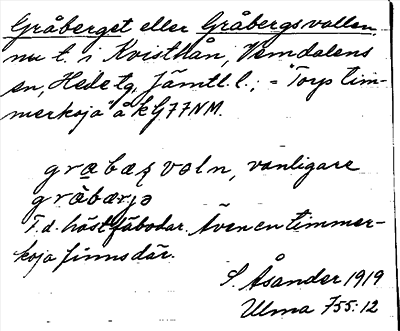 Gråberget eller Gråbergsvallen
nu t. i Kvisthån, Vemdalens
sn, Hede tg, Jämtl. l.; = "Torps tim-
merkoja" å kG77NM.
græbæʂvoln, vanligare
gråbærjə
F.d. höstfäbodar. Även en timmer-
koja finns där.
S. Åsander 1919
Ulma 755:12